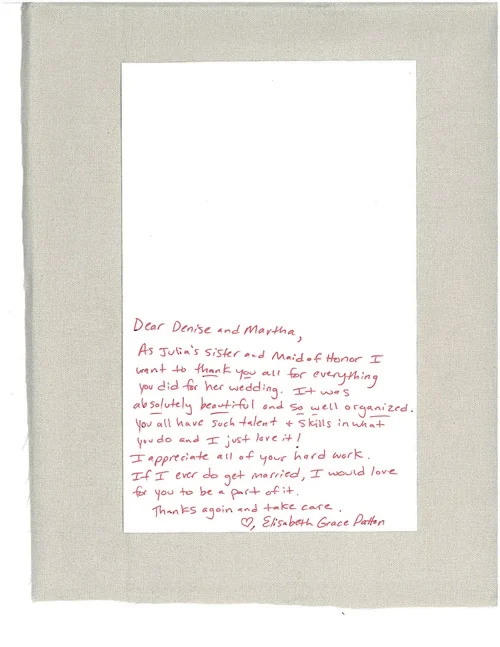 Dear Denise and Martha,
As Julia's sister and Maid of Honor I
want to thank you all for everything
you did for her wedding. It was
absolutely beautiful and so well organized.
You all have such talent + skills in what
you do and I just love it!
I appreciate all of your hard work.
If I ever do get married, I would love
for you to be a part of it.
Thanks again and take care.
♡, Elisabeth Grace Patton